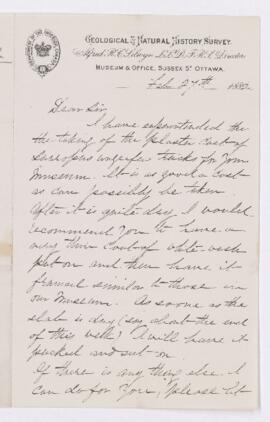 GEOLOGICAL & NATURAL HISTORY SURVEY.
Alfred R.C. Selwyn L.L.D. F.R.S. Director
MUSEUM & OFFICE, SUSSEX ST OTTAWA.
Feb 27th 188
Dear Sir
I have superintended the
the taking of the plaster cast of
tracks for your
Museum. It is as good a cast
as can possibly be taken.
After it is quite dry I would
recommend you to have a
very thin coat of white-wash
put on and then have it
framed similar to those in
our Museum. As soon as the
slab is dry (say about the end
of this week) I will have it
packed and sent on.
If there is any thing else I
can do for you, please let